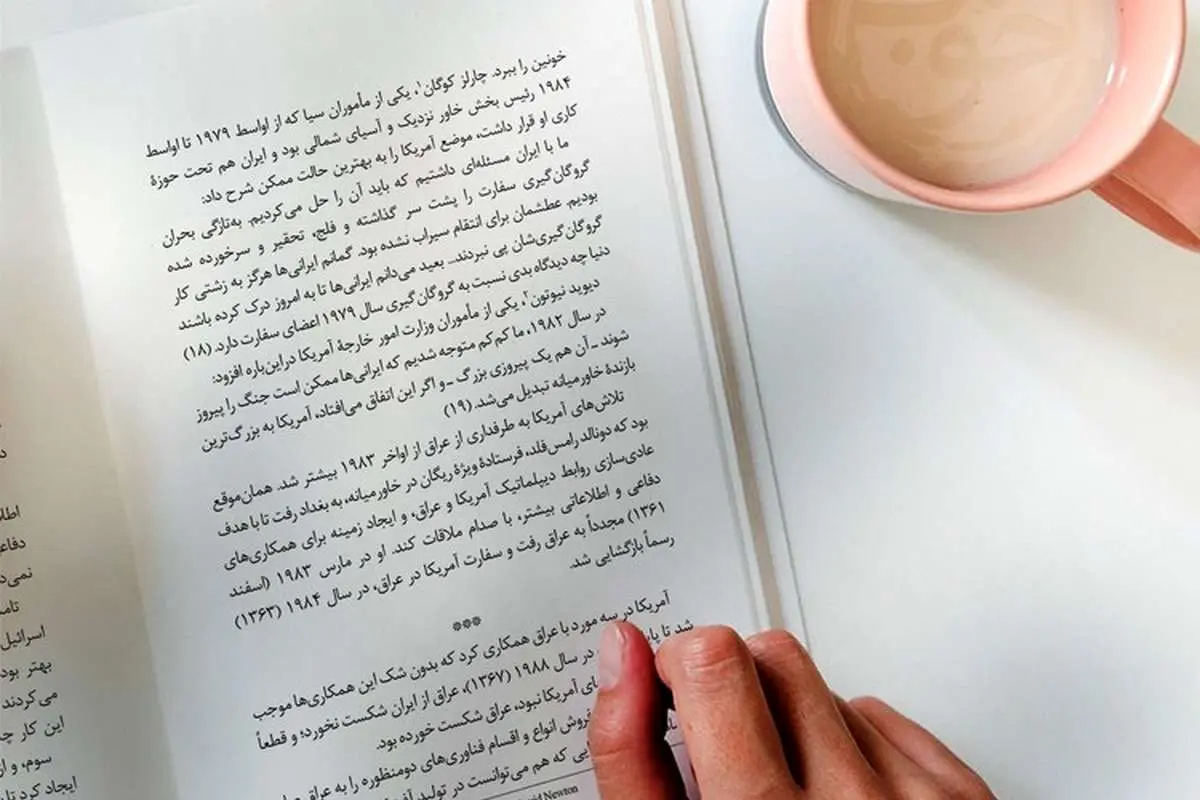 خونین را ببرد. چارلز کوگان۱، یکی از مأموران سیا که از اواسط ۱۹۷۹ تا اواسط
۱۹۸۴ رئیس بخش خاور نزدیک و آسیای شمالی بود و ایران هم تحت حوزهٔ
کاری او قرار داشت، موضع آمریکا را به بهترین حالت ممکن شرح داد:
ما با ایران مسئله‌ای داشتیم که باید آن را حل می‌کردیم. به‌تازگی بحران
گروگان‌گیری سفارت را پشت سر گذاشته و فلج، تحقیر و سرخورده شده
بودیم. عطشمان برای انتقام سیراب نشده بود. گمانم ایرانی‌ها هرگز به زشتی کار
گروگان‌گیری‌شان پی نبردند... بعید می‌دانم ایرانی‌ها تا به امروز درک کرده باشند
دنیا چه دیدگاه بدی نسبت به گروگان‌گیری سال ۱۹۷۹ اعضای سفارت دارد. (۱۸)
دیوید نیوتون۲، یکی از مأموران وزارت امور خارجهٔ آمریکا دراین‌باره افزود:
در سال ۱۹۸۲، ما کم‌کم متوجه شدیم که ایرانی‌ها ممکن است جنگ را پیروز
شوند ـ آن هم یک پیروزی بزرگ ـ و اگر این اتفاق می‌افتاد، آمریکا به بزرگ‌ترین
بازندهٔ خاورمیانه تبدیل می‌شد. (۱۹)
تلاش‌های آمریکا به طرفداری از عراق از اواخر ۱۹۸۳ بیشتر شد. همان‌موقع
بود که دونالد رامس‌فلد، فرستادهٔ ویژهٔ ریگان در خاورمیانه، به بغداد رفت تا با هدف
عادی‌سازی روابط دیپلماتیک آمریکا و عراق، و ایجاد زمینه برای همکاری‌های
دفاعی و اطلاعاتی بیشتر، با صدام ملاقات کند. او در مارس ۱۹۸۳ (اسفند
۱۳۶۱) مجدداً به عراق رفت و سفارت آمریکا در عراق، در سال ۱۹۸۴ (۱۳۶۳)
رسماً بازگشایی شد.
***
آمریکا در سه مورد با عراق همکاری کرد که بدون شک این همکاری‌ها موجب
شد تا در سال ۱۹۸۸ (۱۳۶۷)، عراق از ایران شکست نخورد؛ و قطعاً
آمریکا نبود، عراق شکست خورده بود.
فروش انواع و اقسام فناوری‌های دومنظوره را به عراق
که هم می‌توانست در تولید
Newton
دفاع
نمی‌د
اسرائیل
بهتر بود
می‌کردند
این کار
سوم، و از
ایجاد کرد تا